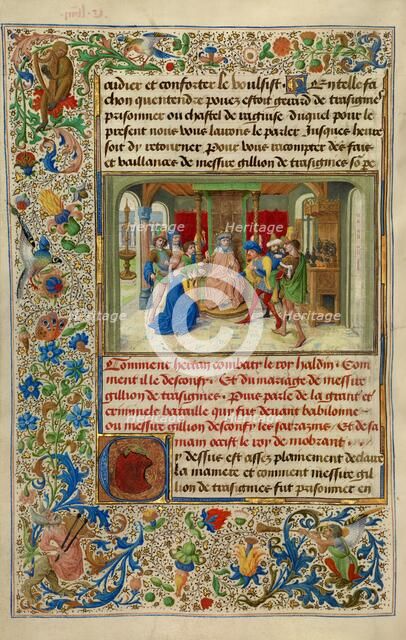 audier et conforter le boulsist En telle fa
chon quentendre pouez estoit gerard de trasignies
prisonner ou chastel de raguse duquel pour le
present nous vous lairons le parler Jusques heure
soit dy retourner Pour vous racompter des fais
et vaillances de messire gillion de trasignies so pe
Comment hertan combaty le roy haldin Com
ment il le desconfi Et du mariage de messire
gillion de trasignies Puis parle de la grant et
criminele bataille qui fut deuant babilonne
ou messire gillion desconfi les sarrazins Et de sa
main occist le roy de mobrant
Cy dessus est assez plainement declaire
la maniere et comment messire gil
lion de trasignies fut prisonner en
Heritage
Images
Heritage
Images
Heritage
Images
Heritage
Images